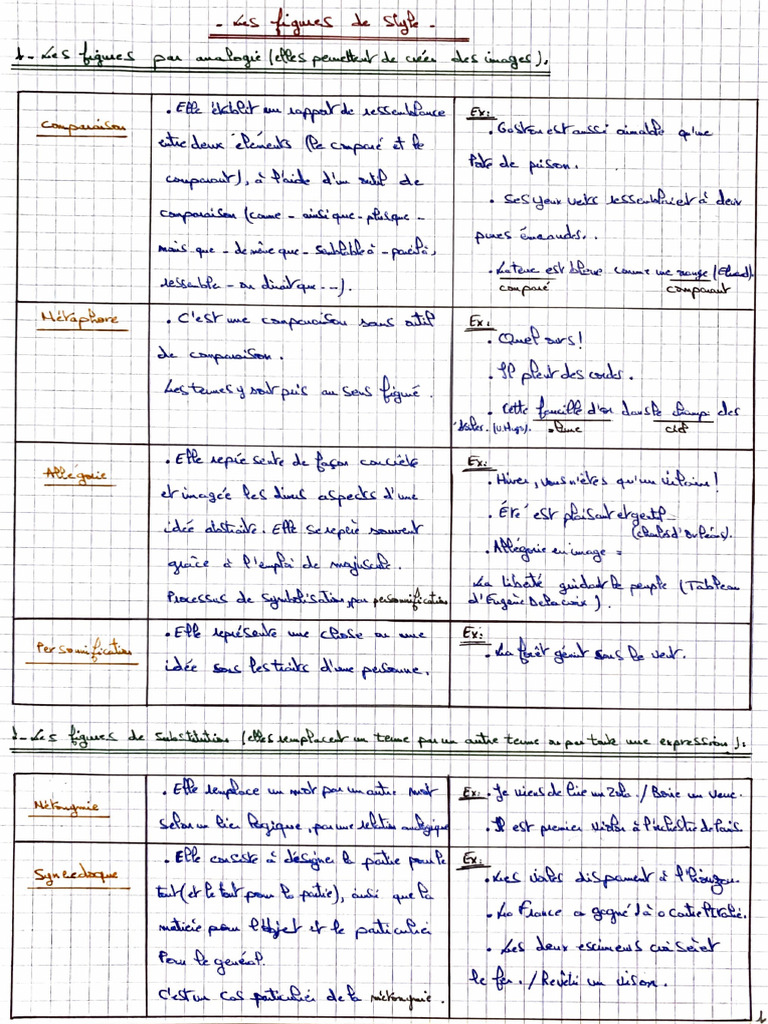 - Les figures de style -
1- Les figures par analogie (elles permettent de créer des images).
Comparaison
. Elle établit un rapport de ressemblance
entre deux éléments (le comparé et le
comparant), à l'aide d'un outil de
comparaison (comme - ainsi que - plus que -
mais que - de même que - semblable à - pareil à,
ressemble - on dirait que ---).
Ex:
. Gaston est aussi aimable qu'une
Porte de prison.
. Ses yeux verts ressemblaient à deux
pures émeraudes..
. La terre est bleue comme une orange (Eluard).
comparé comparant
Métaphore
. C'est une comparaison sans outil
de comparaison.
Les termes y sont pris au sens figuré.
Ex:
. Quel ours!
. Il pleut des cordes.
. Cette faucille d'or dans le champ des
étoiles. (V.Hugo). . lune ciel
Allégorie
. Elle représente de façon concrète
et imagée les divers aspects d'une
idée abstraite. Elle se repère souvent
grâce à l'emploi de majuscule.
Processus de symbolisation, par personnification
Ex:
. Hiver, vous n'êtes qu'un vilain!
. Été est plaisant et gentil -
(Charles d'Orléans).
. Allégorie en image =
La liberté guidant le peuple (Tableau
d'Eugène Delacroix).
Personnification
. Elle représente une chose ou une
idée sous les traits d'une personne.
Ex:
. La forêt gémit sous le vent.
- Les figures de substitution (elles remplacent un terme par un autre terme ou par toute une expression):
Métonymie
. Elle remplace un mot par un autre mot
selon un lien logique, par une relation analogique
Ex: . Je viens de lire un Zola. / Boire un verre.
. Il est premier violon à l'orchestre de Paris.
Synecdoque
. Elle consiste à désigner la partie pour le
tout (et le tout pour la partie), ainsi que la
matière pour l'objet et le particulier
Pour le général.
C'est un cas particulier de la métonymie.
Ex:
. Les voiles disparaissent à l'horizon.
. La France a gagné 1 à 0 contre l'Italie.
. Les deux escrimeurs croisèrent
le fer. / Revêtir un vison.
1